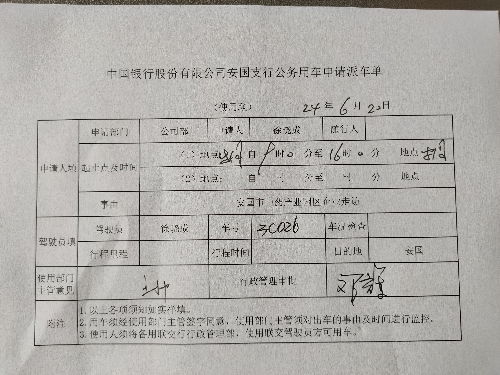 中国银行股份有限公司安国支行公务用车申请派车单
(使用联) 24年6月20日
申请部门 公司部 申请人 徐晓成 随行人
申请人填 起止点及时间 (1) 地点: 自 9时0分至16时0分 地点
(2) 地点: 自 时 分至 时 分 地点
事由 安国市
驾驶员填 驾驶员 徐晓成 车号 3C026 车况检查
行程里程 行程时间 目的地 安国
使用部门主管意见 行政管理审批
附注 1.以上各项须知如实详填。
2.用车须经使用部门主管签字同意, 使用部门主管须对出车的事由及时间进行监控。
3.使用人须将备用联交行政管理部, 使用联交驾驶员方可用车。